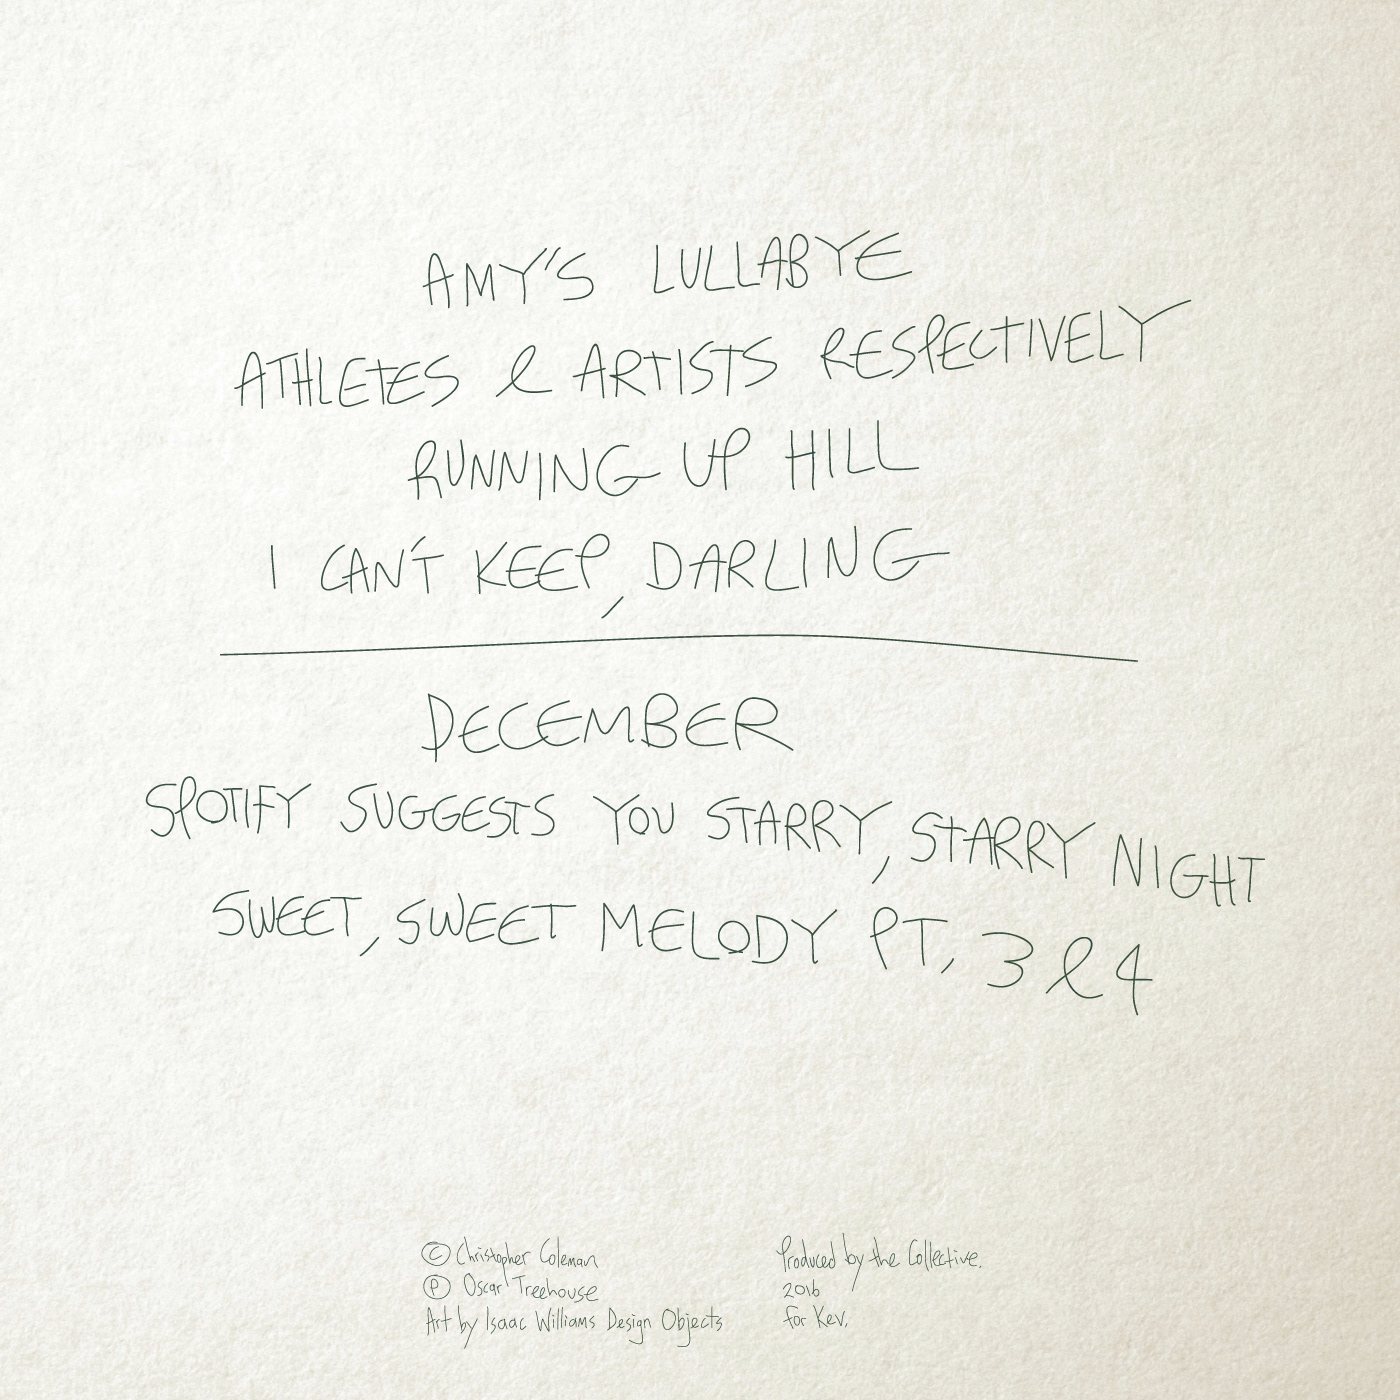 AMY'S LULLABYE
ATHLETES & ARTISTS RESPECTIVELY
RUNNING UP HILL
I CAN'T KEEP, DARLING
DECEMBER
SPOTIFY SUGGESTS YOU STARRY, STARRY NIGHT
SWEET, SWEET MELODY PT, 3 & 4
© Christopher Coleman
℗ Oscar Treehouse
Art by Isaac Williams Design Objects
Produced by the Collective.
2016
for Kev.